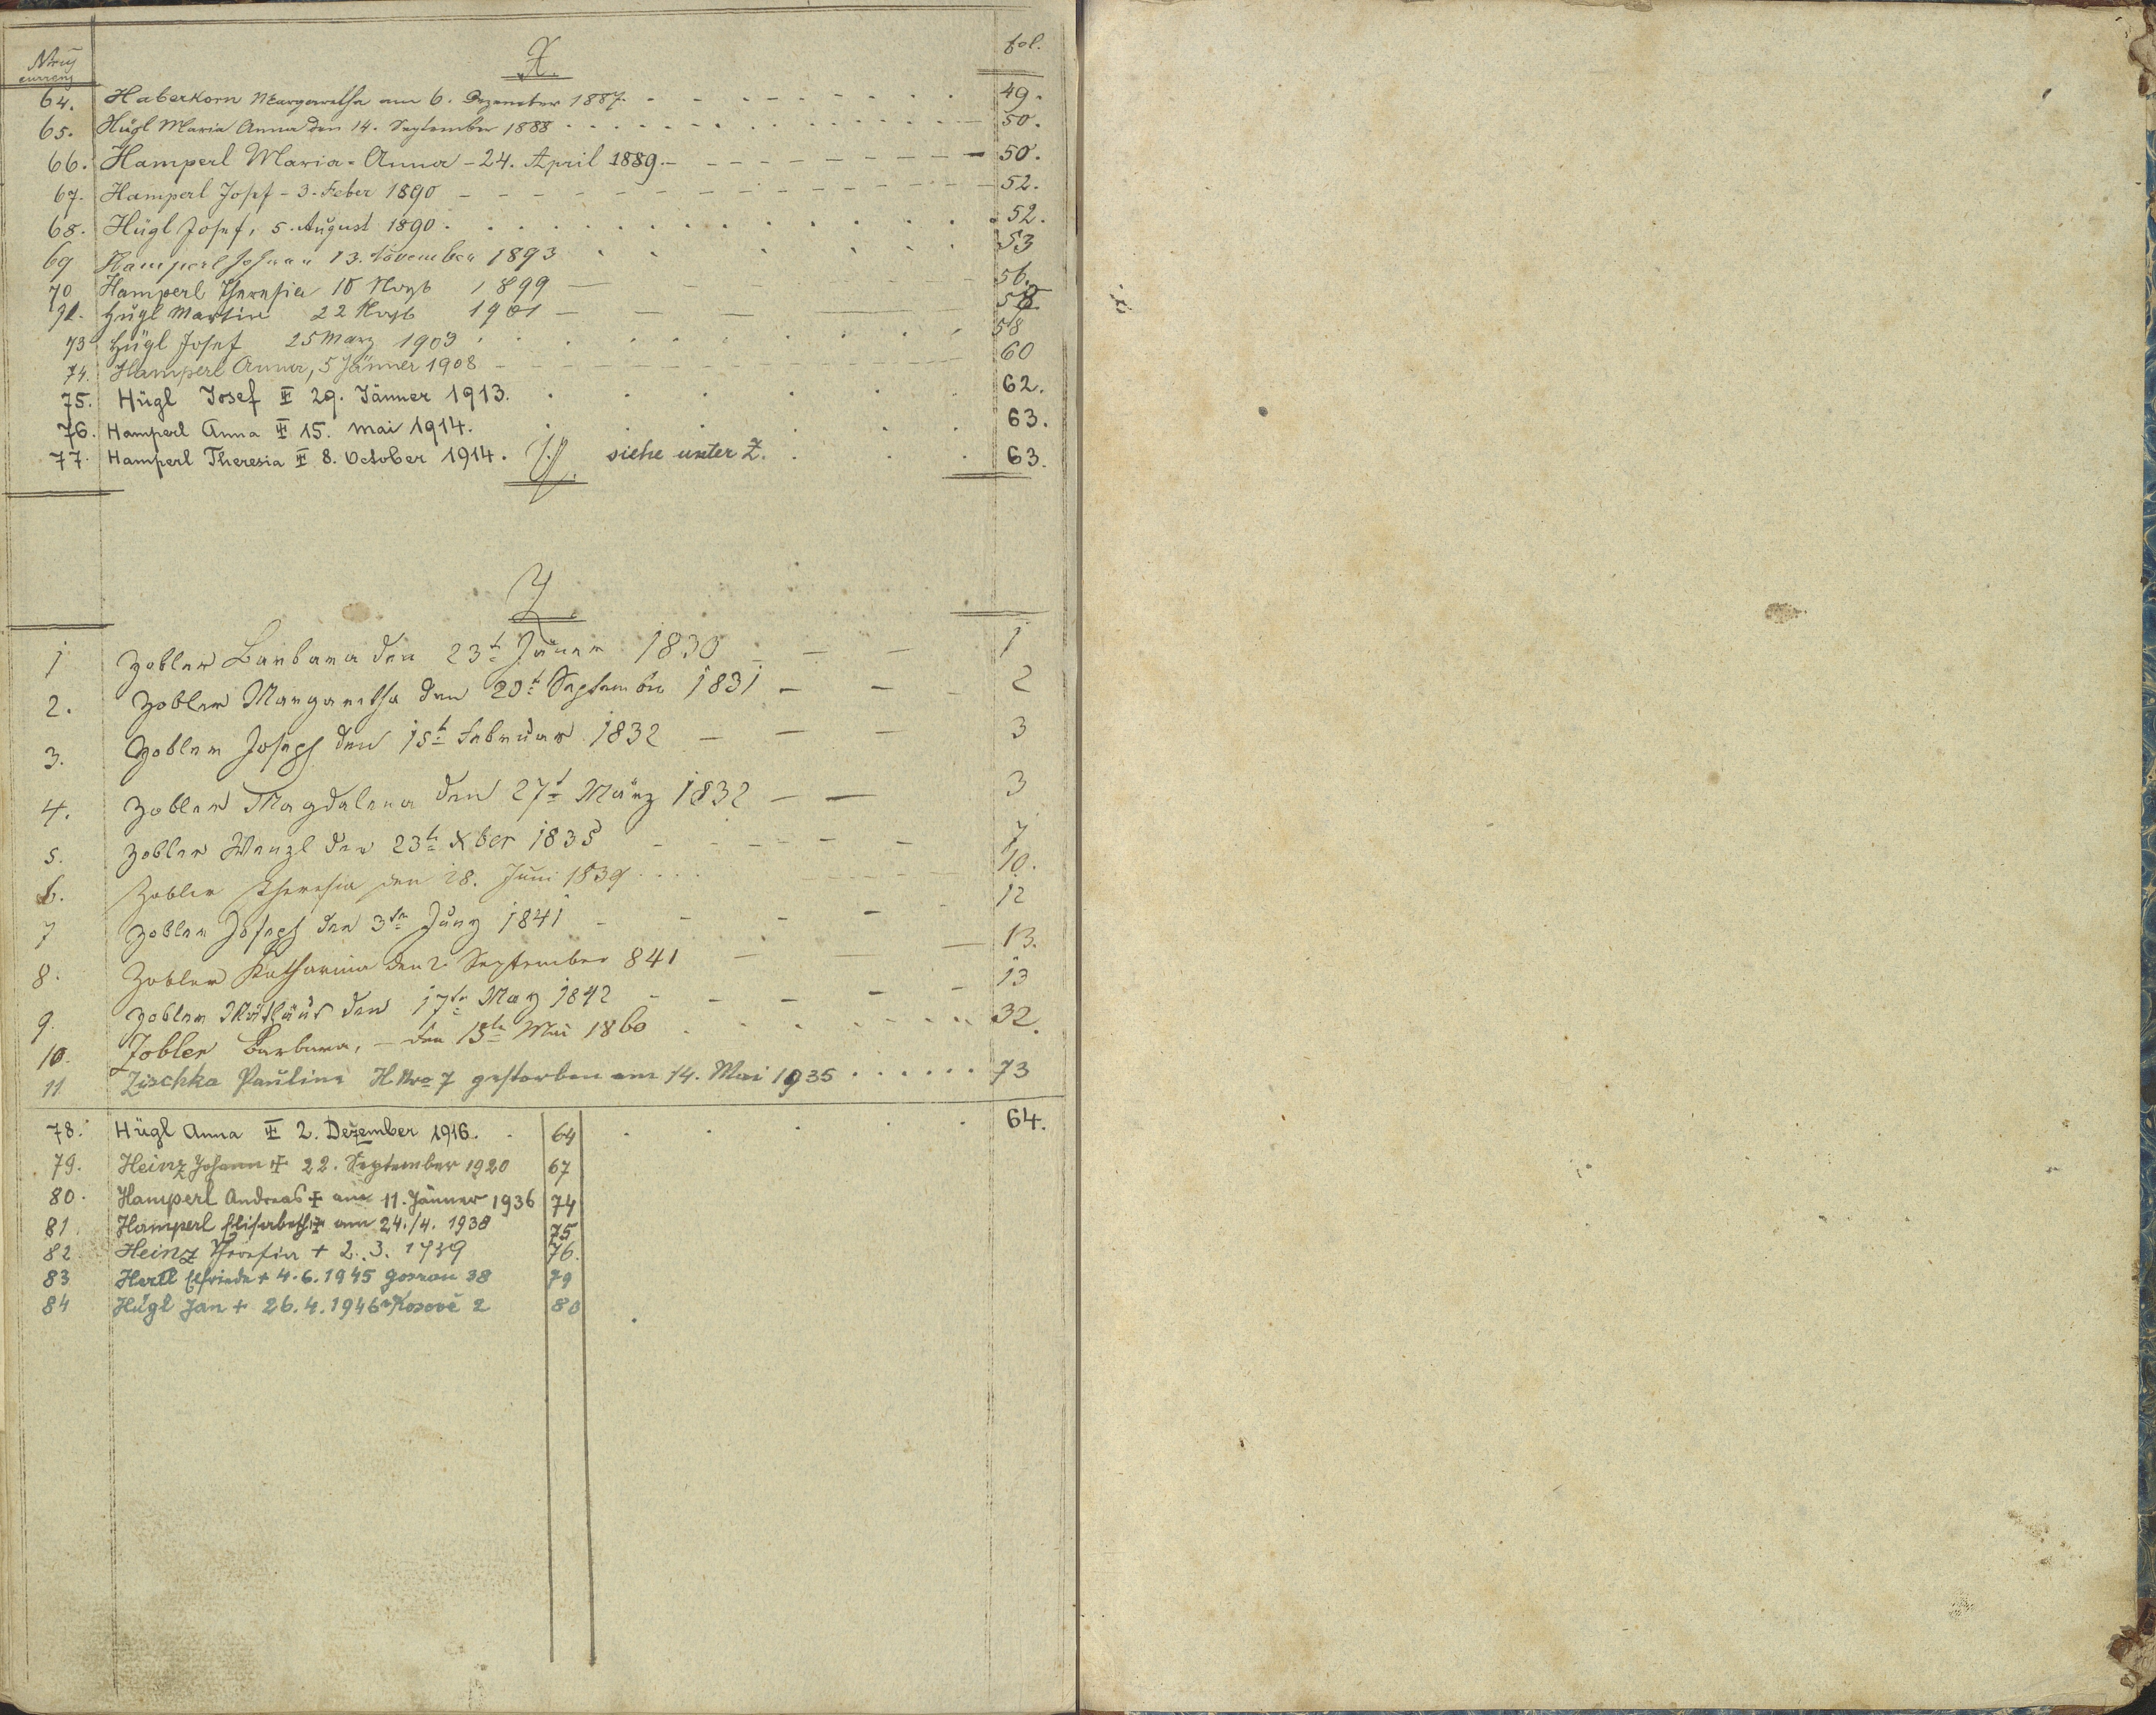 Nrus currens X. fol.
64. Haberkorn Margaretha am 6. Dezember 1887. 49.
65. Hügl Maria Anna den 14. September 1888 50.
66. Hamperl Maria-Anna - 24. April 1889. 50.
67. Hamperl Josef - 3. Feber 1890 52.
68. Hügl Josef, 5. August 1890. 52.
69 Hamperl Johann 13. November 1893 53
70 Hamperl Theresia 10 1899 56.
Hügl Martin 22 1901 58
73 Hügl Josef 25 März 1903 58
74. Hamperl Anna, 5 Jänner 1908 60
75. Hügl Josef ☩ 29. Jänner 1913. 62.
76. Hamperl Anna ☩ 15. Mai 1914. 63.
77. Hamperl Theresia ☩ 8. October 1914. Y. siehe unter Z. 63.
Z.
1 Zobler Barbara den 23t Jäner 1830 1
2. Zobler Margaretha den 20t September 1831 2
3. Zobler Joseph den 15t Februar 1832 3
4. Zobler Magdalena den 27t März 1832 3
5. Zobler Wenzl den 23t Xber 1835 7
6. Zobler Theresia den 28. Juni 1839 10.
7 Zobler Joseph den 3tn Juny 1841 12
8. Zobler Katharina den 2. September 841 13.
9. Zobler den 17tn May 1842 13
10. Zobler Barbara, - den 15tn Mai 1860 32.
11 Zischka Pauline H Nro 7 gestorben am 14. Mai 1935 73
78. Hügl Anna ☩ 2. Dezember 1916. 64 64.
79. Heinz Johann ☩ 22. September 1920 67
80. Hamperl Andreas ☩ am 11. Jänner 1936 74
81 Hamperl Elisabeth ☩ am 24./4. 1938 75
82 Heinz Theresia + 2. 3. 1939 76.
83 Hertl Elfriede + 4. 6. 1945 38 79
84 Hügl Jan + 26. 4. 1946 Kosově 2 80